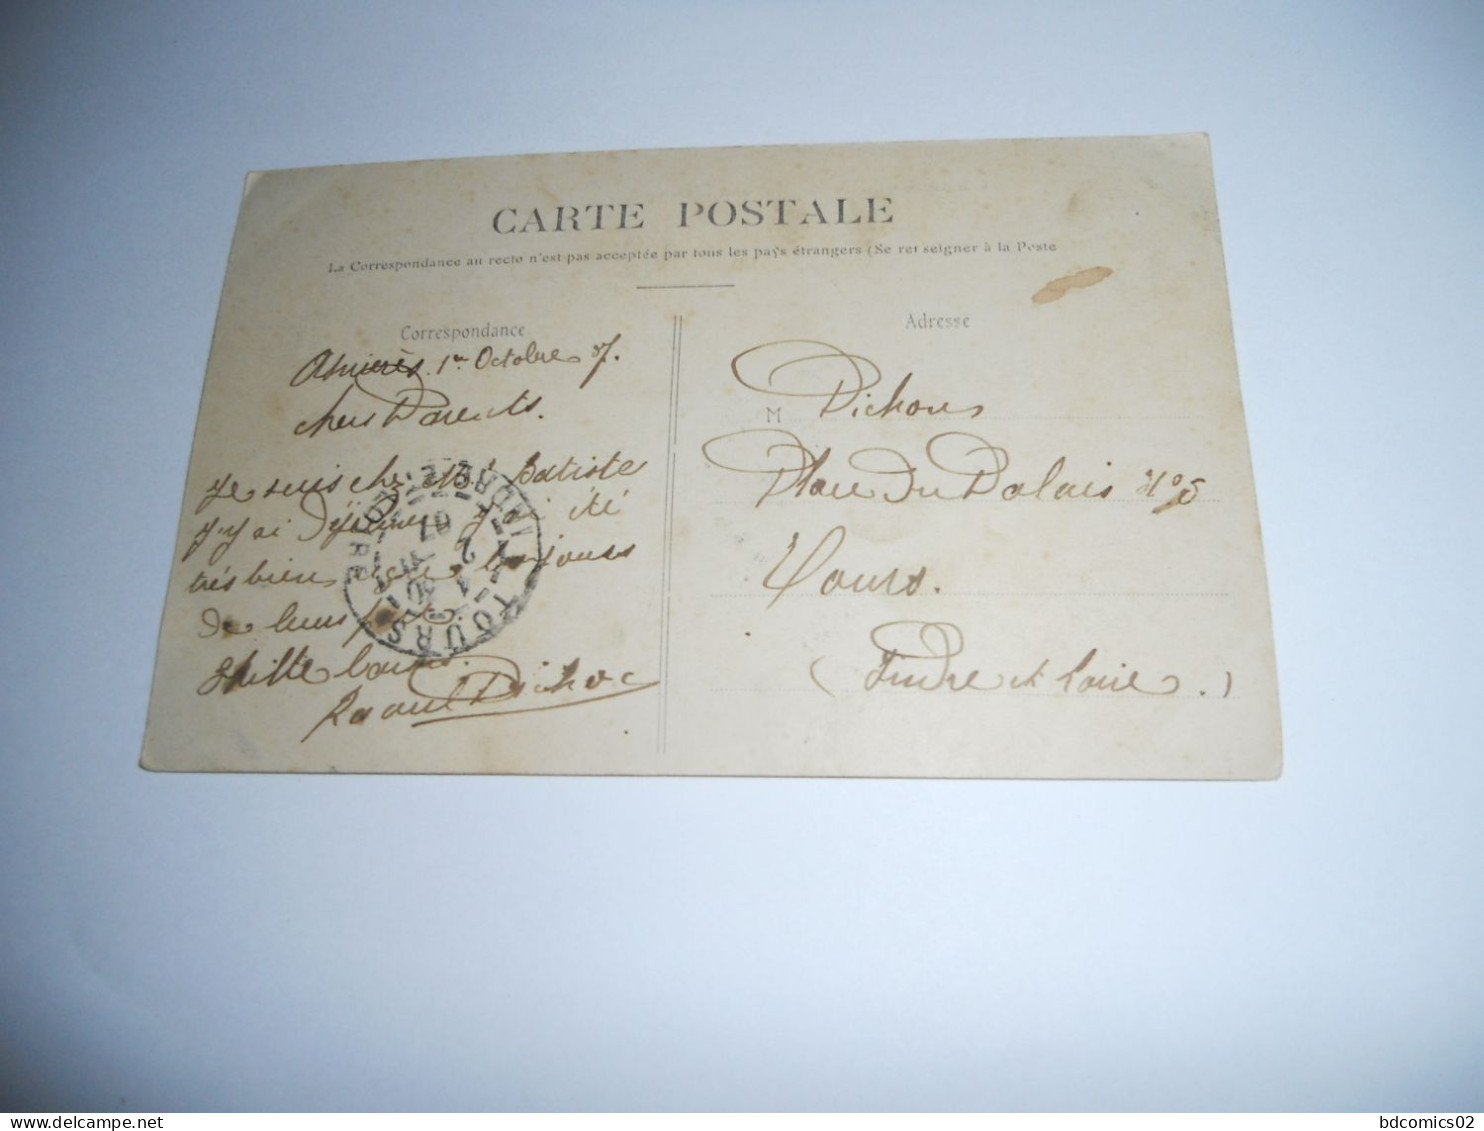 CARTE POSTALE
La Correspondance au recto n'est pas acceptée par tous les pays étrangers (Se renseigner à la Poste
Correspondance
Asnières. 1er Octobre 07.
chers Parents.
je suis chez Batiste
j'y ai Déjeuner j'ai été
très bien toujours
de leurs
Mille
Raoul Pichon
TOURS
INDRE-ET-LOIRE
Adresse
M Pichon
Place du Palais No 5
Tours.
(Indre et Loire.)
bdcomics02